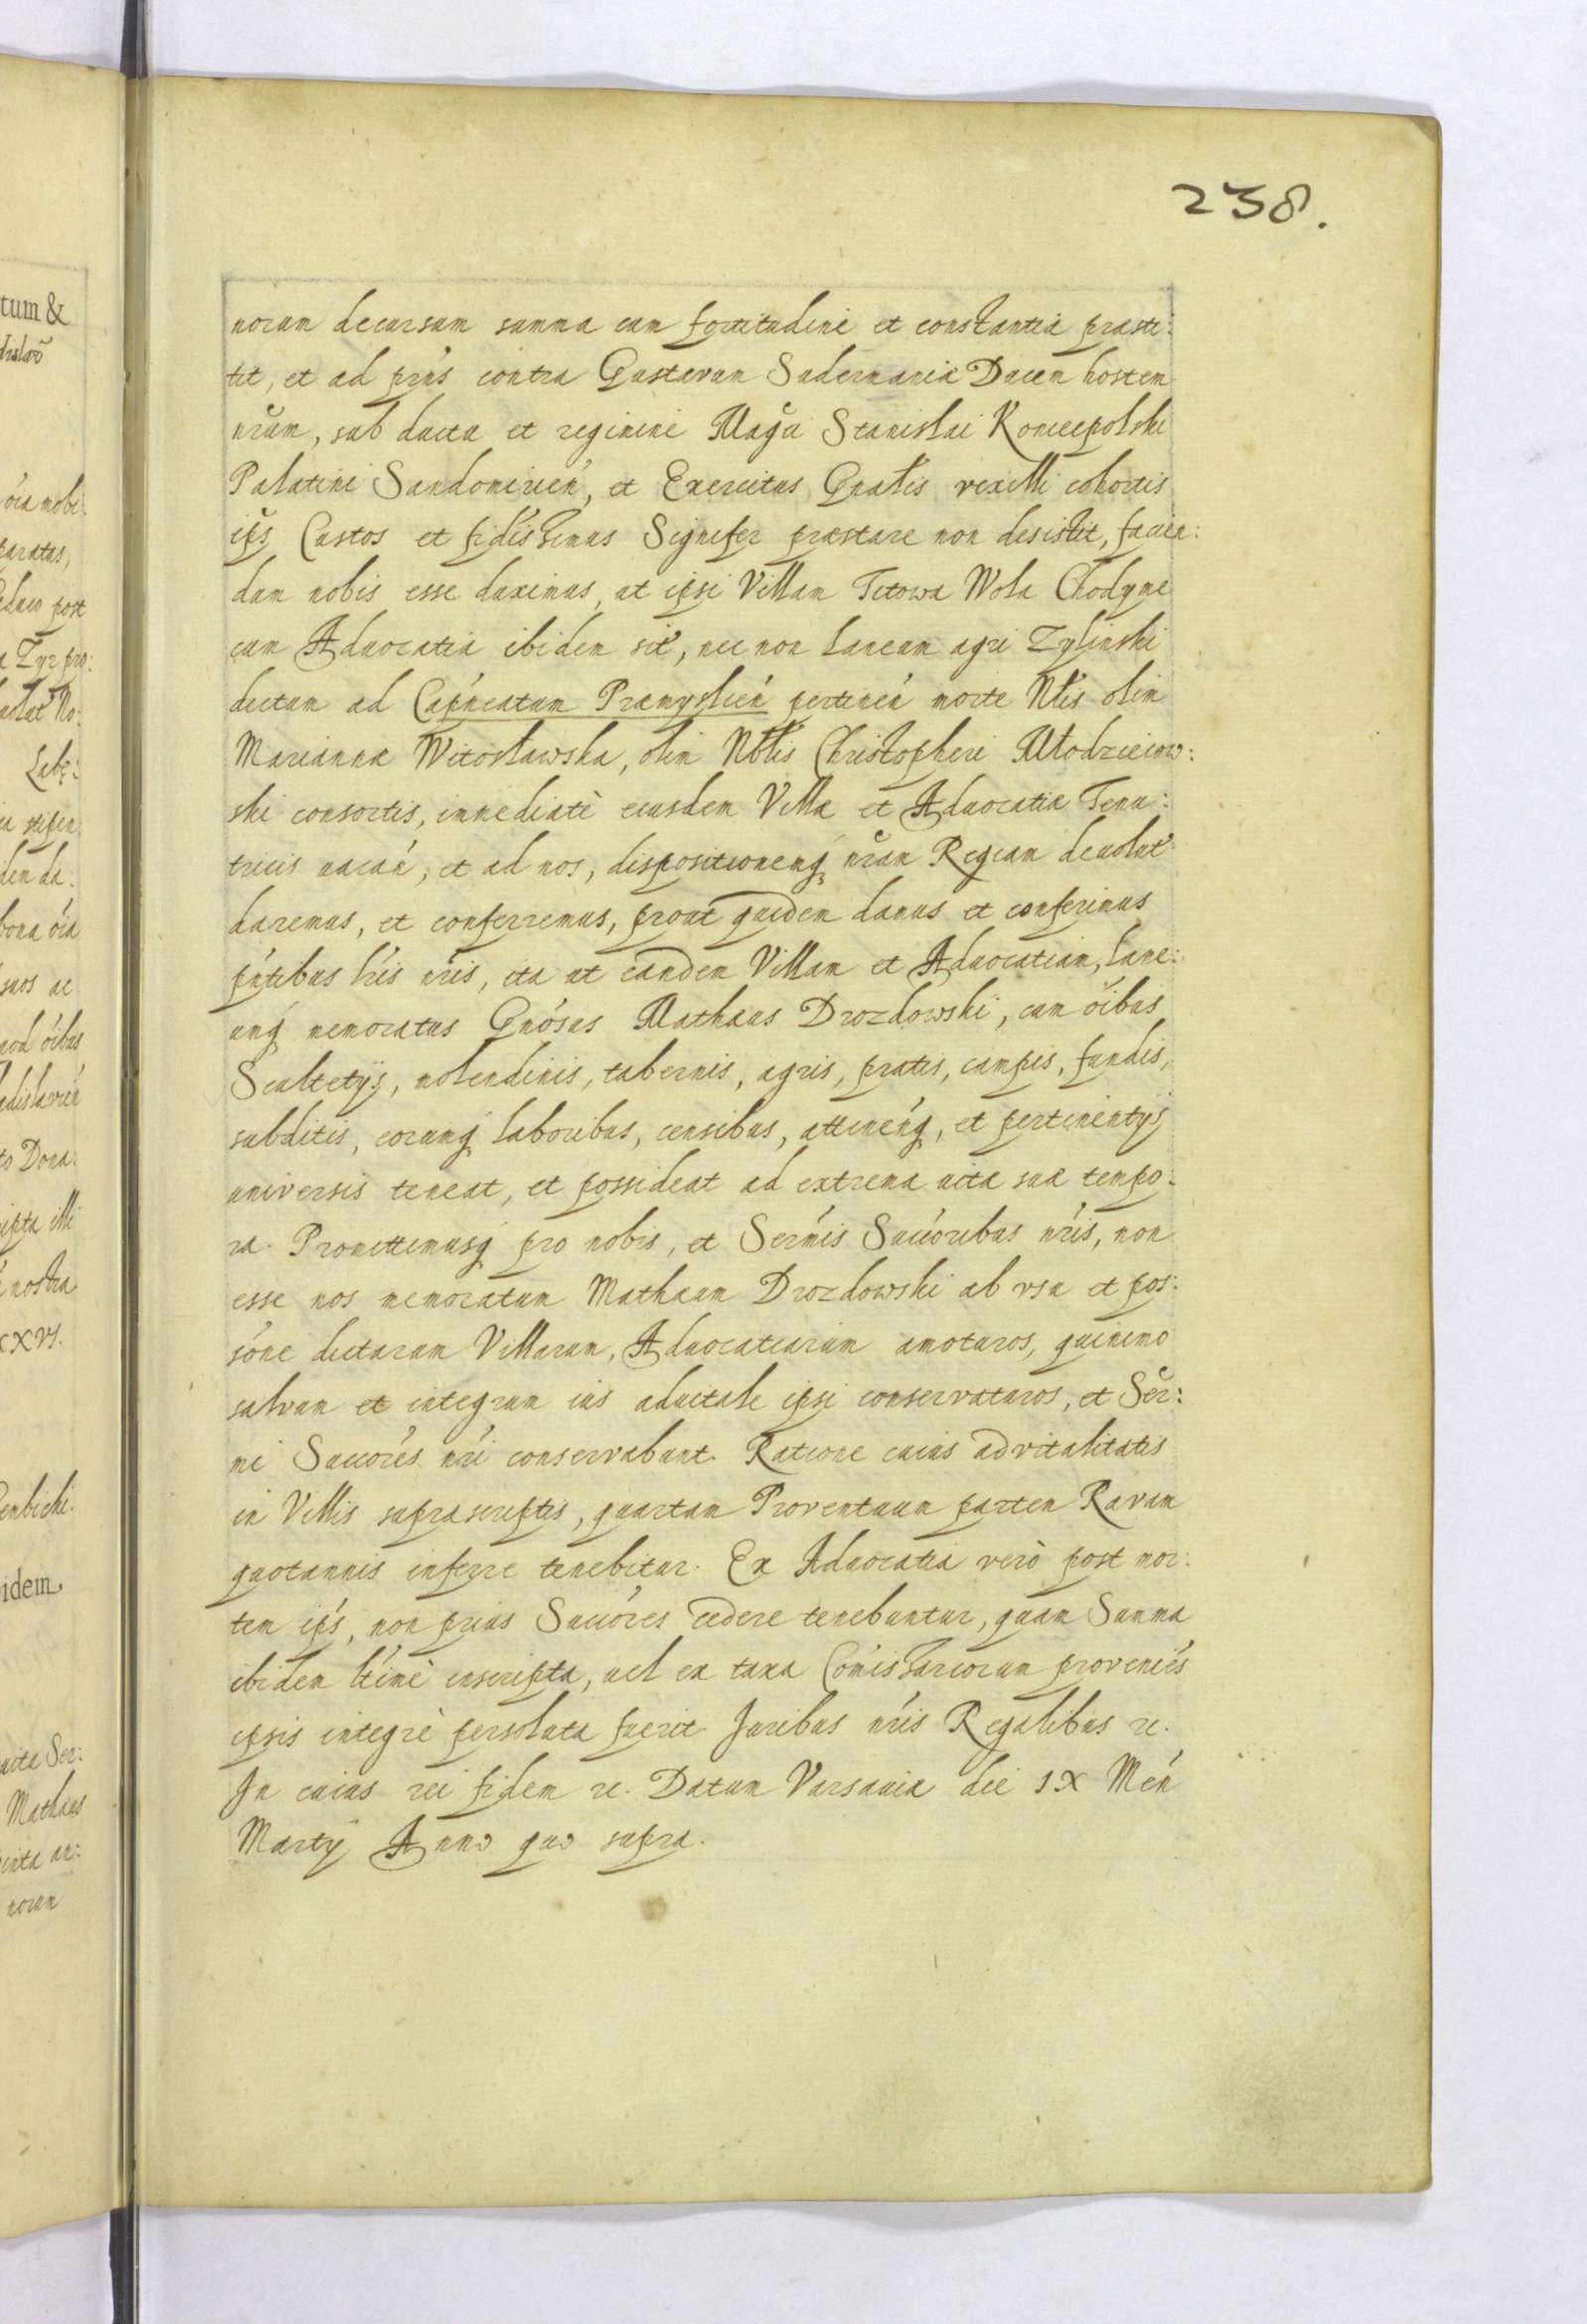 238.
norum decursum summa cum fortitudine et constantia præsti:
tit, et ad prńs contra Gustavum Sudermaniæ Ducem hostem
nrũm, sub ductu et regimine Magci Stanislai Koniecpolski
Palatini Sandomirień, et Exercitus Gnalis vexilli cohortis
ips Custos et fidissimus Signifer præstare non desistit, facien:
dum nobis esse duximus, ut ipsi Villam Titowa Wola Chodyne
cum Aduocatia ibidem sit, nec non laneum agri Zylinski
dictum ad Capńeatum Præmyslień pertineń morte Nlis olim
Mariannæ Witosławska, olim Nblis Christopheri Młodzieiow:
ski consortis, immediatè eiusdem Villæ et Aduocatiæ Tenu:
tricis vacań, et ad nos, dispositionemq nrãm Regiam deuolut
daremus, et conferremus, prout quidem damus et conferimus
pńtibus lris nris, ita ut eandem Villam et Aduocatiam, lane:
umq memoratus Gnósus Mathæus Drozdowski, cum óibus
Scultetys, molendinis, tabernis, agris, pratis, campis, fundis,
subditis, eorumq laboribus, censibus, attineńq, et pertinentijs
universis teneat, et possideat ad extrema uitæ suæ tempo:
ra. Promittimusq pro nobis, et Sermis Succoribus nris, non
esse nos memoratum Mathæum Drozdowski ab vsu et pos:
sóne dictarum Villarum, Aduocatiarum amoturos, quinimo
salvum et integrum ius aduitale ipsi conservaturos, et Ser:
mi Succóres nri conservabunt. Ratione cuius advitalitatis
in Villis suprascriptis, quartam Proventuum partem Ravam
quotannis inferre tenebitur. Ex Aduocatia verò post mor:
tem ips, non prius Succóres cedere tenebuntur, quam Summa
ibidem ltimè inscripta, uel ex taxa Cómissariorum provenięs
ipsis integrè persoluta fuerit. Juribus nris Regalibus rc.
In cuius rei fidem rc. Datum Varsauiæ die IX Meń
Martij Anno quo supra.